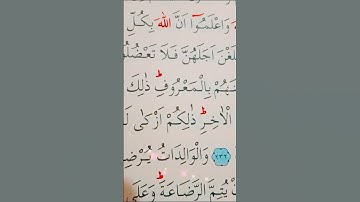 وَاعْلَمُوْٓا اَنَّ اللّٰهَ بِكُلِّ
لَغْنَ اَجَلَهُنَّ فَلَا تَعْضُلُو
نَهُمْ بِالْمَعْرُوْفِ ؕ ذٰلِكَ
الْاٰخِرِ ؕ ذٰلِكُمْ اَزْكٰى لَ
﴿۲۳۲﴾ وَالْوَالِدَاتُ يُرْضِ
يُّتِمَّ الرَّضَاعَةَ ؕ وَعَلَى